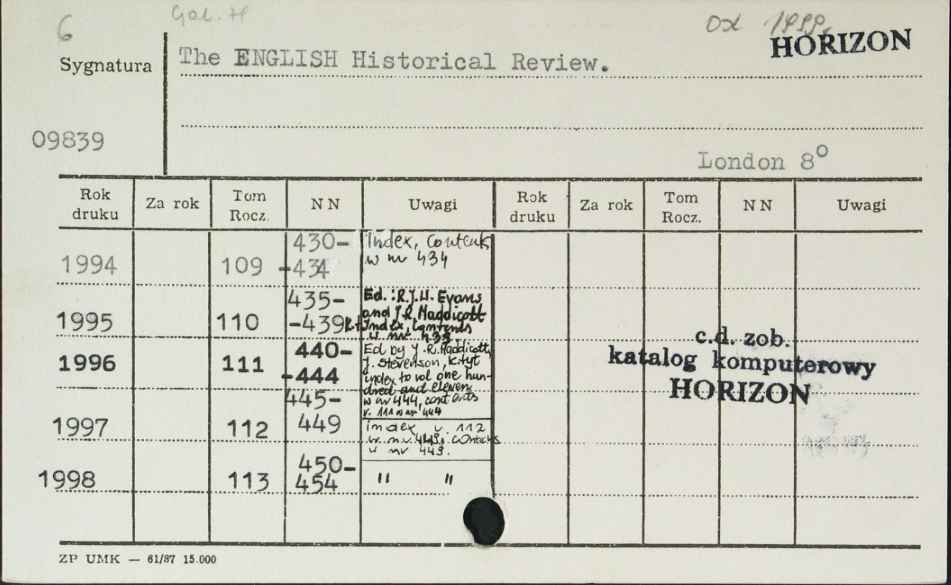 6 Gal. H od 1999.
HORIZON
Sygnatura The ENGLISH Historical Review.
09839
London 8°
Rok druku Za rok Tom Rocz. NN Uwagi Rok druku Za rok Tom Rocz. NN Uwagi
1994 109 430-
-434 Index, contents
w nr 434
1995 110 435-
-439 Ed.: R.J.W. Evans
and J.R. Maddicott
Index, Contents
w nr 439
1996 111 440-
-444 Ed by J.R. Maddicott,
J. Stevenson, K.tyt
index to vol one hun-
dred and eleven
w nr 444, contents
v. 111 w nr 444
1997 112 445-
449 index v. 112
w nr 449, contents
w nr 449.
1998 113 450-
454 " "
c.d. zob.
katalog komputerowy
HORIZON
ZP UMK — 61/87 15.000